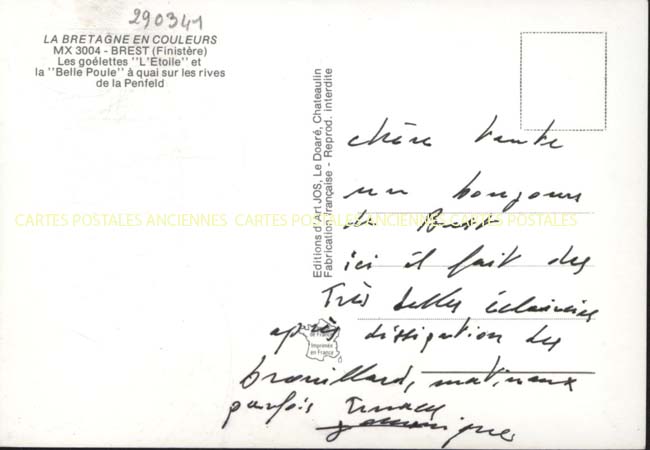 290341
LA BRETAGNE EN COULEURS
MX 3004 - BREST (Finistère)
Les goélettes "L'Étoile" et
la "Belle Poule" à quai sur les rives
de la Penfeld
Editions d'Art JOS, Le Doaré, Chateaulin
Fabrication Française - Reprod. interdite
chère tante
un bonjour
de Brest
ici il fait des
Très belles éclaircies
après dissipation des
brouillards, matinaux
parfois
de France
Imprimée
en France
CARTES POSTALES ANCIENNES CARTES POSTALES ANCIENNES CARTES POSTALES